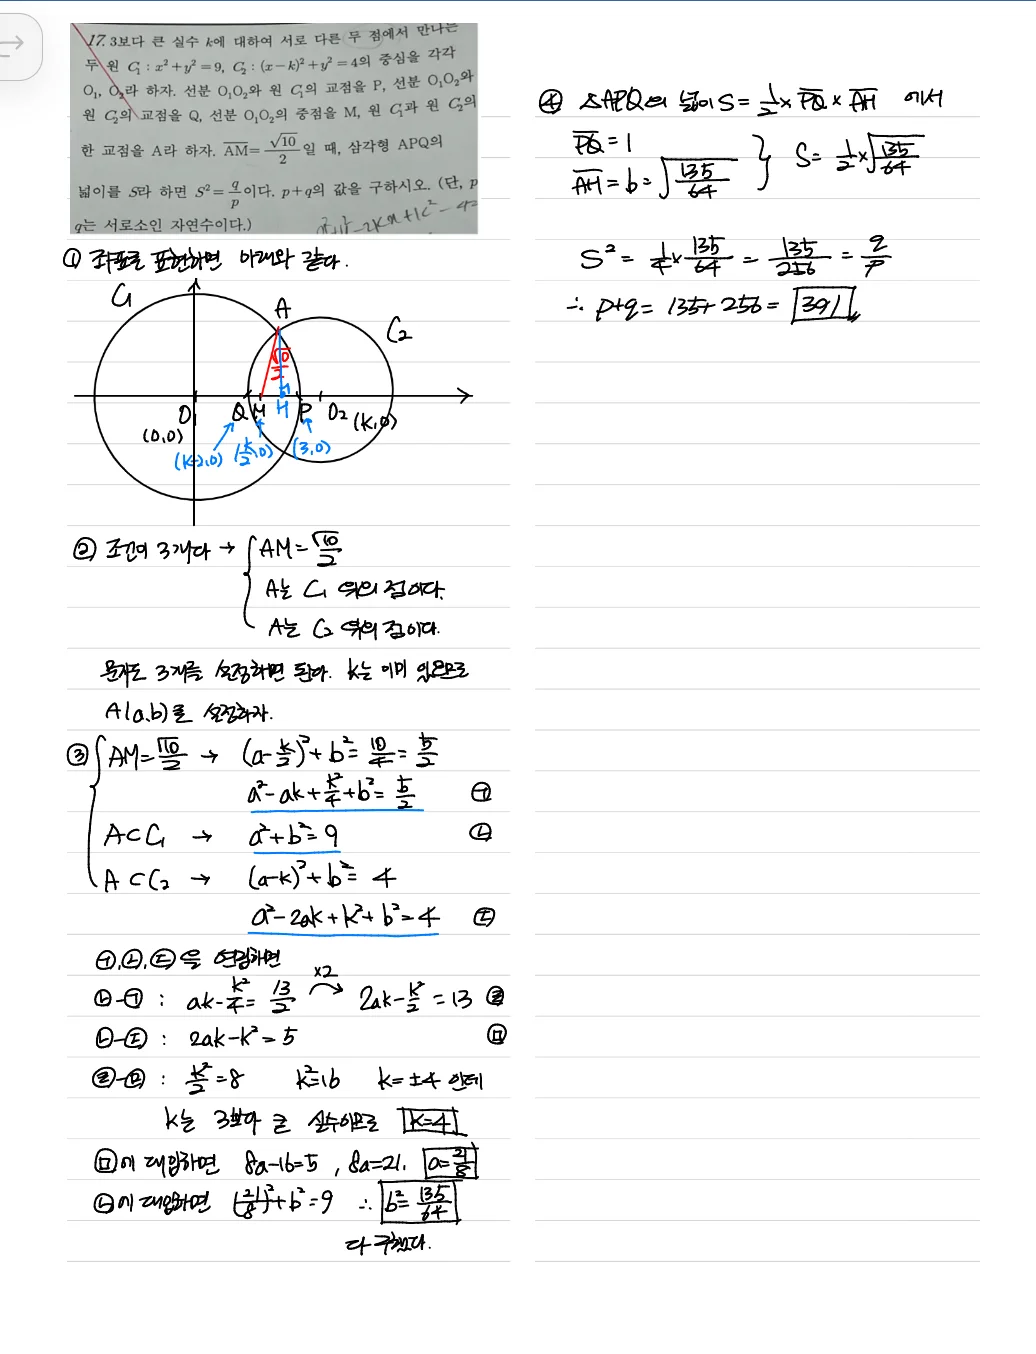 17. 3보다 큰 실수 k에 대하여 서로 다른 두 점에서 만나는
두 원 C₁ : x²+y²=9, C₂ : (x-k)²+y²=4의 중심을 각각
O₁, O₂라 하자. 선분 O₁O₂와 원 C₁의 교점을 P, 선분 O₁O₂와
원 C₂의 교점을 Q, 선분 O₁O₂의 중점을 M, 원 C₁과 원 C₂의
한 교점을 A라 하자. AM=√10/2일 때, 삼각형 APQ의
넓이를 S라 하면 S²=q/p이다. p+q의 값을 구하시오. (단, p
q는 서로소인 자연수이다.)
① 좌표로 표현하면 아래와 같다.
C₁
A
C₂
√10/2
O Q M H P O₂ (k,0)
(0,0)
(k-2,0) (k/2,0) (3,0)
② 조건이 3개다 → { AM=√10/2
A는 C₁ 위의 점이다.
A는 C₂ 위의 점이다.
문자도 3개를 설정하면 된다. k는 이미 있으므로
A(a,b)를 설정하자.
③ { AM=√10/2 → (a-k/2)²+b²=10/4=5/2
a²-ak+k²/4+b²=5/2 ㉠
A⊂C₁ → a²+b²=9 ㉡
A⊂C₂ → (a-k)²+b²=4
a²-2ak+k²+b²=4 ㉢
㉠,㉡,㉢을 연립하면
㉡-㉠ : ak-k²/4=13/2 ×2 → 2ak-k²/2=13 ㉣
㉡-㉢ : 2ak-k²=5 ㉤
㉣-㉤ : k²/2=8 k²=16 k=±4 인데
k는 3보다 큰 실수이므로 k=4
㉤에 대입하면 8a-16=5, 8a=21, a=21/8
㉡에 대입하면 (21/8)²+b²=9 ∴ b²=135/64
다 구했다.
④ △APQ의 넓이 S=1/2×PQ×AH 에서
PQ=1
AH=b=√135/64 } S=1/2×√135/64
S²=1/4×135/64=135/256=q/p
∴ p+q=135+256=391